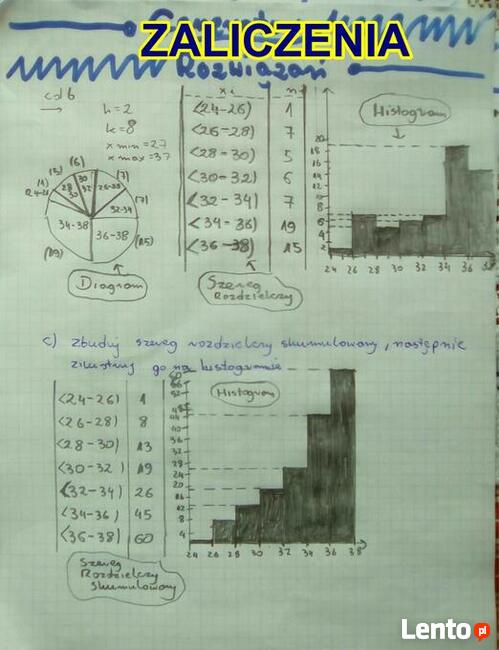 ZALICZENIA
Rozwiązań
cd b
h=2
k=8
x min = 27
x max = 37
xi n
<24-26) 1
<26-28) 7
<28-30) 5
<30-32) 6
<32-34) 7
<34-36) 19
<36-38) 15
Histogram
20
18
16
14
12
10
24 26 28 30 32 34 36 38
(5) (6) (7)
(1) 28 30 30 32 26-28 (7)
32-34
34-38
36-38
(19) (15)
Diagram
Szereg
Rozdzielczy
c) zbuduj szereg rozdzielczy skumulowany, następnie
zilustruj go na histogramie
<24-26) 1
<26-28) 8
<28-30) 13
<30-32) 19
<32-34) 26
<34-36) 45
<36-38) 60
Histogram
60
56
52
48
44
40
36
32
28
24
20
16
12
8
4
24 26 28 30 32 34 36 38
Szereg
Rozdzielczy
skumulowany
Lento.pl